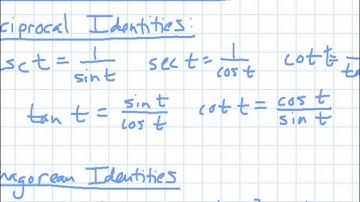 ciprocal Identities:
sc t = 1/sin t sec t = 1/cos t cot t =
tan t = sin t/cos t cot t = cos t/sin t
agorean Identities